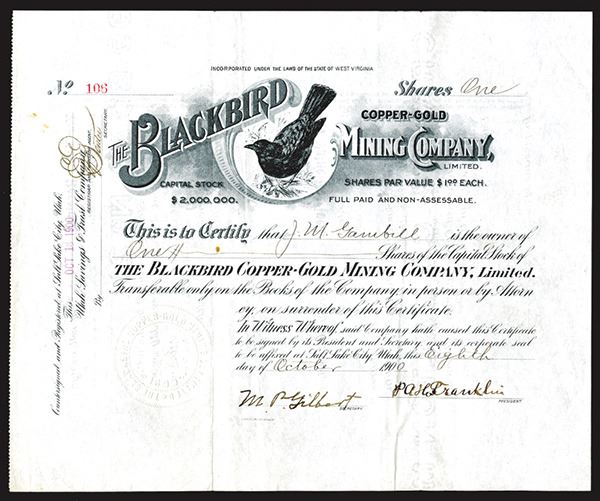 INCORPORATED UNDER THE LAWS OF THE STATE OF WEST VIRGINIA
No 106
Shares One
THE BLACKBIRD
COPPER-GOLD
MINING COMPANY,
LIMITED.
CAPITAL STOCK
$2,000,000.
SHARES PAR VALUE $1.00 EACH.
FULL PAID AND NON-ASSESSABLE.
This is to Certify that J. M. Gambill is the owner of
One Shares of the Capital Stock of
THE BLACKBIRD COPPER-GOLD MINING COMPANY, Limited.
Transferable only on the Books of the Company, in person or by Attorn
ey, on surrender of this Certificate.
In Witness Whereof said Company hath caused this Certificate
to be signed by its President and Secretary and its corporate seal
to be affixed at Salt Lake City, Utah, this Eighth
day of October 1900
M. P. Gilbert
SECRETARY
Franklin
PRESIDENT
Countersigned and Registered at Salt Lake City, Utah,
This OCT 1900
Utah Savings & Trust Company
By
SECRETARY.
COPPER-GOLD